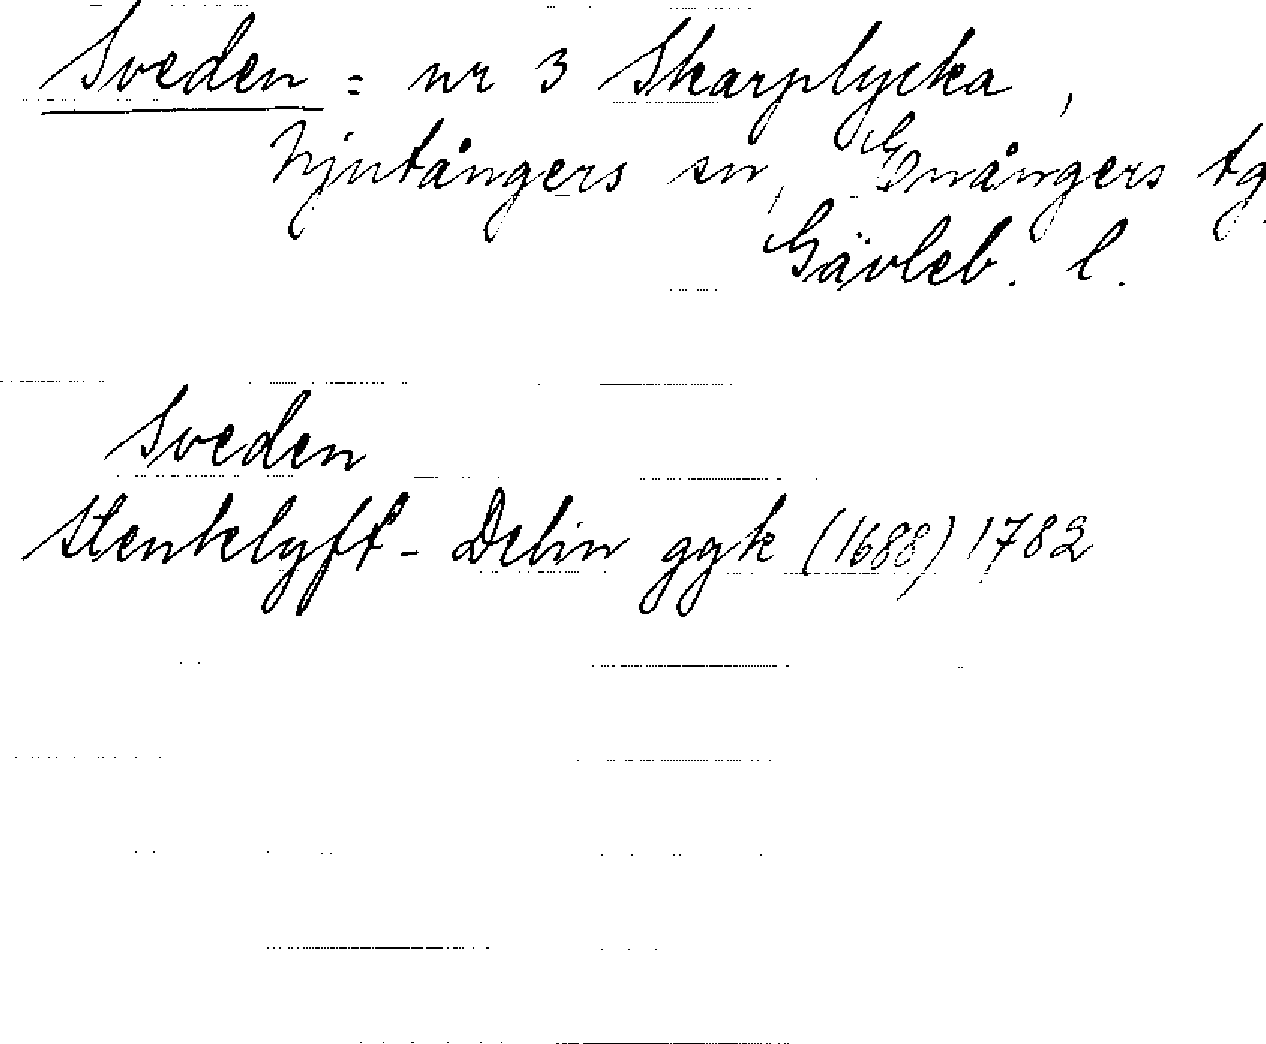 Sveden = nr 3 Skarplycka,
Njutångers sn, Enångers tg.
Gävleb. l.
Sveden
Stenklyft - Delin ggk (1688) 1782